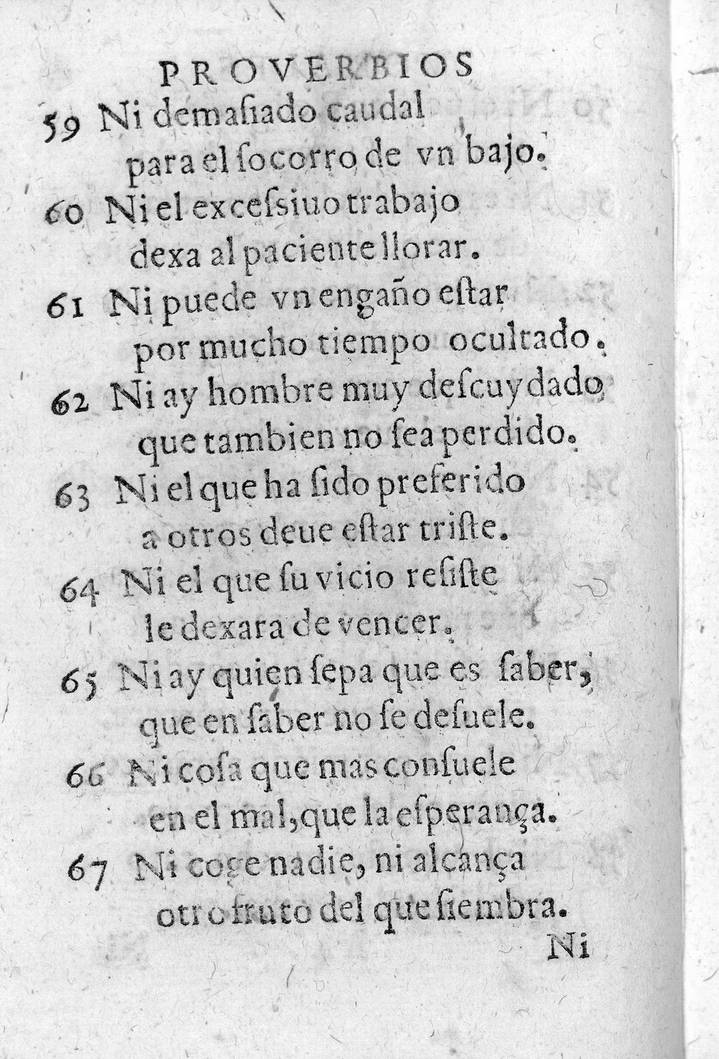 PROVERBIOS
59 Ni demaſiado caudal
para el ſocorro de vn bajo.
60 Ni el exceſsiuo trabajo
dexa al paciente llorar.
61 Ni puede vn engaño eſtar
por mucho tiempo ocultado.
62 Ni ay hombre muy deſcuydado
que tambien no ſea perdido.
63 Ni el que ha ſido preferido
a otros deue eſtar triſte.
64 Ni el que ſu vicio reſiſte
le dexara de vencer.
65 Ni ay quien ſepa que es ſaber,
que en ſaber no ſe deſuele.
66 Ni coſa que mas conſuele
en el mal, que la eſperança.
67 Ni coge nadie, ni alcança
otro fruto del que ſiembra.
Ni